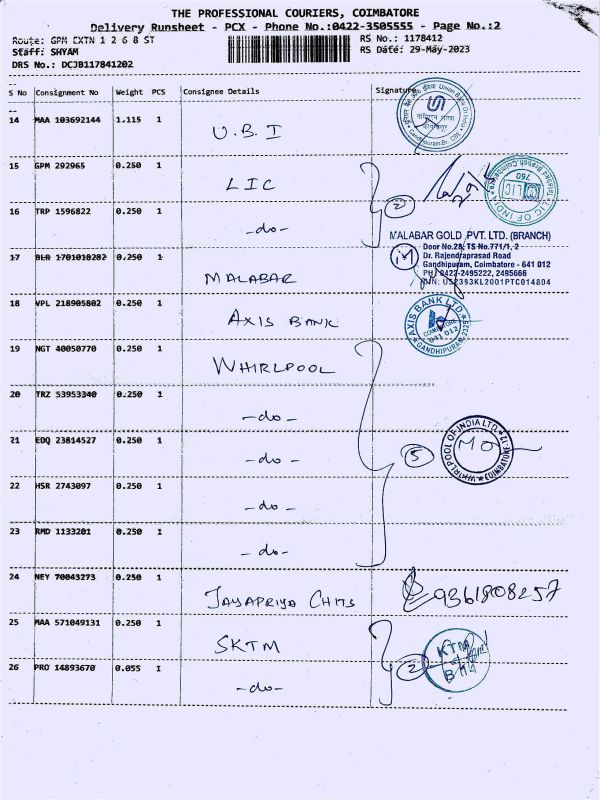 THE PROFESSIONAL COURIERS, COIMBATORE
Delivery Runsheet - PCX - Phone No.:0422-3505555 - Page No.:2
Route: GPM EXTN 1 2 6 8 ST
RS No.: 1178412
Staff: SHYAM
RS Date: 29-May-2023
DRS No.: DCJB117841202
S No Consignment No Weight PCS Consignee Details Signature
14 MAA 103692144 1.115 1 U.B.I
15 GPM 292965 0.250 1 LIC
16 TRP 1596822 0.250 1 -do- 2
MALABAR GOLD PVT. LTD. (BRANCH)
Door No.28, TS No.771/1, 2
Dr. Rajendraprasad Road
Gandhipuram, Coimbatore - 641 012
PH: 0422-2495222, 2495666
U52393KL2001PTC014804
17 BLR 1701010282 0.250 1 MALABAR
18 VPL 218905802 0.250 1 AXIS BANK
AXIS BANK LTD
COIMBATORE
641 012
GANDHIPURAM
19 NGT 40050770 0.250 1 WHIRLPOOL
20 TRZ 53953340 0.250 1 -do-
21 EDQ 23814527 0.250 1 -do- 5
WHIRLPOOL OF INDIA LTD. COIMBATORE-12
22 HSR 2743097 0.250 1 -do-
23 RMD 1133201 0.250 1 -do-
24 NEY 70043273 0.250 1 JAYAPRIYA CHITS 9361808257
25 MAA 571049131 0.250 1 SKTM
26 PRO 14893670 0.055 1 -do- 2
KTM